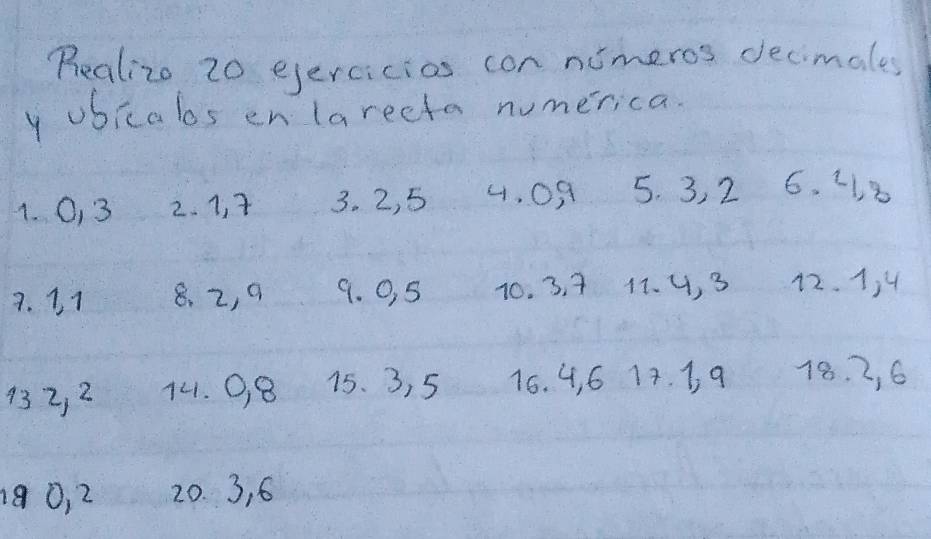 Realizo 20 ejercicios con números decimales
y ubícalos en la recta numérica.
1. 0,3 2. 1,7 3. 2,5 4. 0,9 5. 3,2 6. 4,8
7. 1,1 8. 2,9 9. 0,5 10. 3,7 11. 4,3 12. 1,4
13 2,2 14. 0,8 15. 3,5 16. 4,6 17. 1,9 18. 2,6
19 0,2 20. 3,6